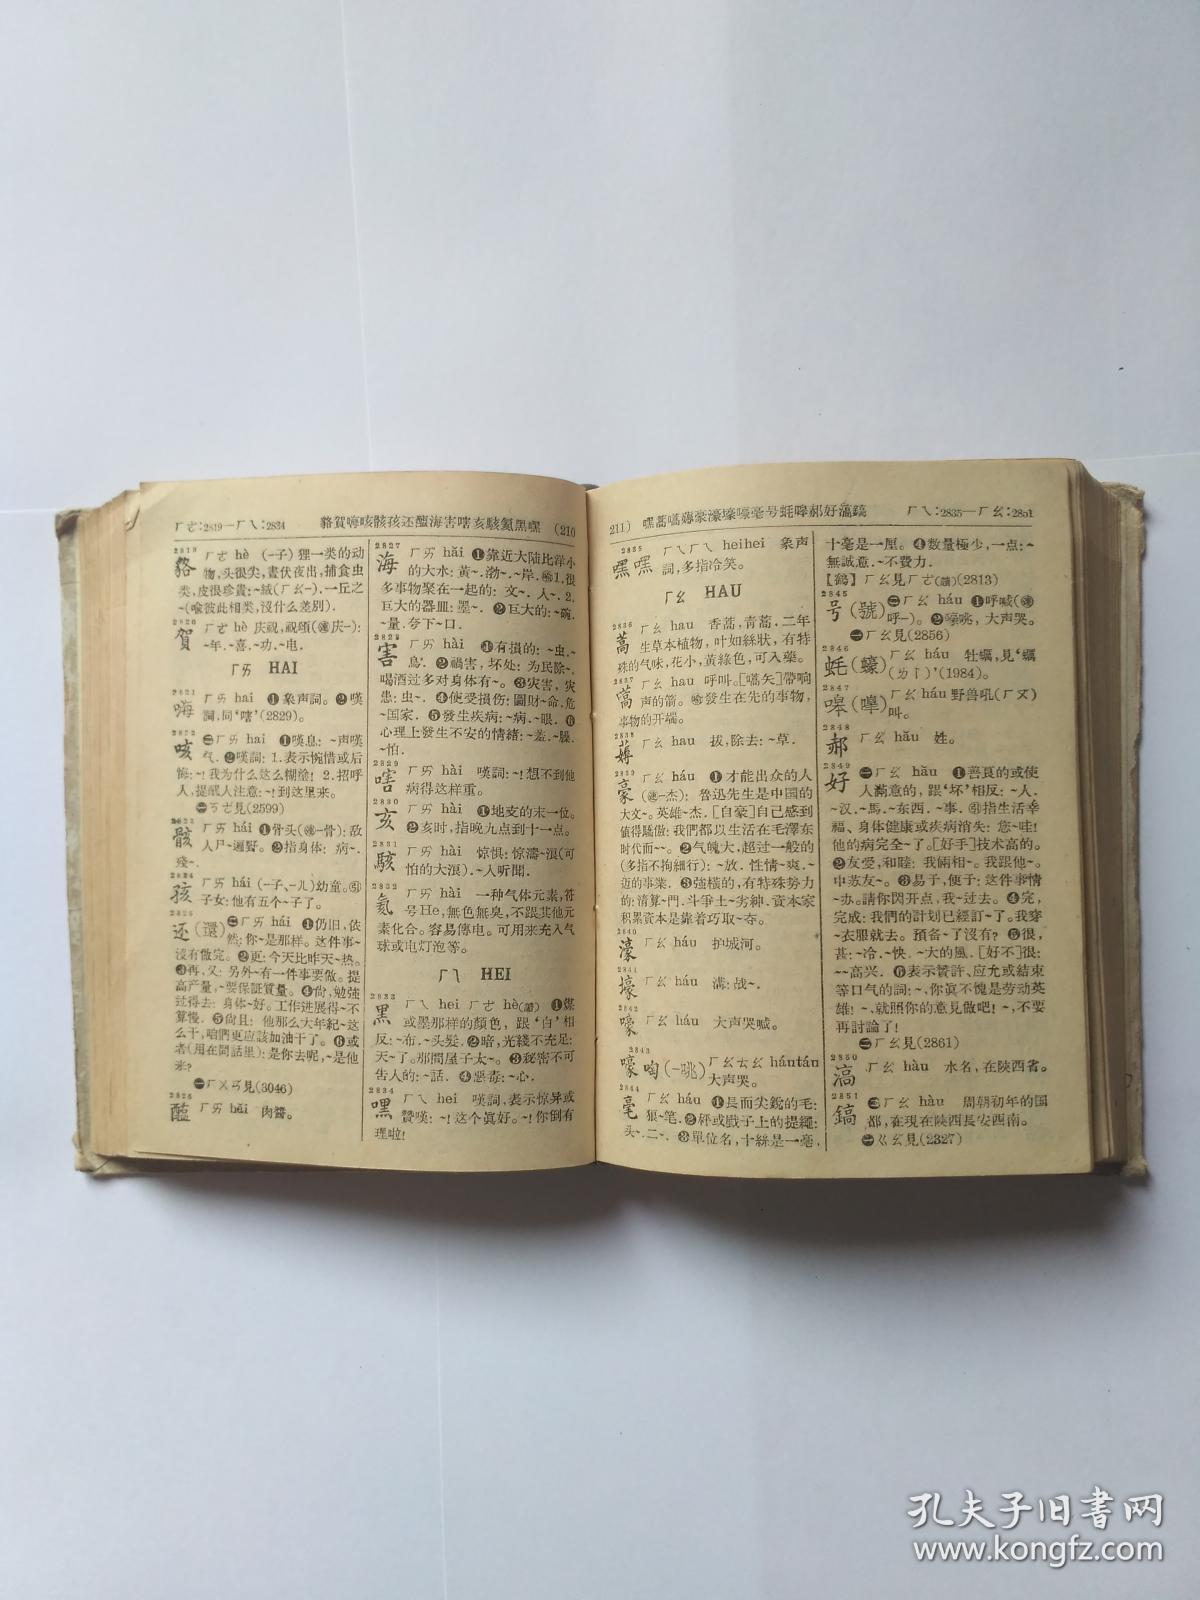 ㄏㄜ:2819—ㄏㄟ:2834 貉賀嗨咳骸孩还醢海害嗐亥駭氦黑嘿 (210
2819
貉 ㄏㄜ hè (-子) 狸一类的动
物,头很尖,晝伏夜出,捕食虫
类,皮很珍貴:~絨(ㄏㄠ-).一丘之
~(喻彼此相类,沒什么差别).
2820
賀 ㄏㄜ hè 庆祝,祝頌(㊣庆-):
~年.~喜.~功.~电.
ㄏㄞ HAI
2821
嗨 ㄏㄞ hai ❶象声詞。❷嘆
詞,同'嗐'(2829)。
2822
咳 ㊁ㄏㄞ hai ❶嘆息:~声嘆
气.❷嘆詞:1.表示惋惜或后
悔:~!我为什么这么糊塗! 2.招呼
人,提醒人注意:~!到这里来。
㊀ㄎㄜ見(2599)
2823
骸 ㄏㄞ hái ❶骨头(-骨):敌
人尸~遍野。❷指身体: 病~.
殘~.
2824
孩 ㄏㄞ hái (-子、-儿) 幼童。
子女:他有五个~子了。
2825
还(還) ㊁ㄏㄞ hái ❶仍旧,依
然:你~是那样。这件事~
沒有做完。❷更:今天比昨天~热。
❸再,又:另外~有一件事要做。提
高产量,~要保証質量。❹尙,勉强
过得去: 身体~好。工作进展得~不
算慢. ❺尙且: 他那么大年紀~这
么干,咱們更应該加油干了。❻或
者(用在問話里):是你去呢,~是他
来?
㊀ㄏㄨㄢ見(3046)
2826
醢 ㄏㄞ hǎi 肉醬。
2827
海 ㄏㄞ hǎi ❶靠近大陆比洋小
的大水:黃~.渤~.~岸.1.很
多事物聚在一起的: 文~.人~.2.
巨大的器皿:墨~.❷巨大的:~碗.
~量.夸下~口.
2828
害 ㄏㄞ hài ❶有損的:~虫.~
鳥.❷禍害,坏处:为民除~.
喝酒过多对身体有~。❸灾害,灾
患:虫~.❹使受損伤:圖財~命.危
~国家.❺發生疾病:~病.~眼.❻
心理上發生不安的情緒:~羞.~臊.
~怕.
2829
嗐 ㄏㄞ hài 嘆詞:~!想不到他
病得这样重。
2830
亥 ㄏㄞ hài ❶地支的末一位。
❷亥时,指晚九点到十一点。
2831
駭 ㄏㄞ hài 惊惧:惊濤~浪(可
怕的大浪).~人听聞.
2832
氦 ㄏㄞ hài 一种气体元素,符
号He,無色無臭,不跟其他元
素化合。容易傳电。可用来充入气
球或电灯泡等。
ㄏㄟ HEI
2833
黑 ㄏㄟ hei ㄏㄜ hè(讀) ❶煤
或墨那样的顏色,跟'白'相
反:~布.~头髮.❷暗,光綫不充足:
天~了。那間屋子太~。❸秘密不可
吿人的:~話.❹恶毒:~心.
2834
嘿 ㄏㄟ hei 嘆詞,表示惊异或
贊嘆:~!这个眞好。~!你倒有
理啦!
211) 嘿蒿嚆薅豪濠壕嚎毫号蚝嗥郝好滈鎬 ㄏㄟ:2835—ㄏㄠ:2851
2835
嘿嘿 ㄏㄟㄏㄟ heihei 象声
詞,多指冷笑。
ㄏㄠ HAU
2836
蒿 ㄏㄠ hau 香蒿,青蒿.二年
生草本植物,叶如絲狀,有特
殊的气味,花小,黃綠色,可入藥。
2837
嚆 ㄏㄠ hau 呼叫。[嚆矢]帶响
声的箭。發生在先的事物,
事物的开端。
2838
薅 ㄏㄠ hau 拔,除去:~草.
2839
豪 ㄏㄠ háu ❶才能出众的人
(-杰): 魯迅先生是中国的
大文~。英雄~杰.[自豪]自己感到
值得驕傲:我們都以生活在毛澤东
时代而~~。❷气魄大,超过一般的
(多指不拘細行):~放.性情~爽.~
迈的事業.❸強橫的,有特殊势力
的:清算~門.斗爭土~劣紳.資本家
积累資本是靠着巧取~夺。
2840
濠 ㄏㄠ háu 护城河。
2841
壕 ㄏㄠ háu 溝:战~.
2842
嚎 ㄏㄠ háu 大声哭喊。
2843
嚎啕(-咷) ㄏㄠㄊㄠ háutáu
大声哭。
2844
毫 ㄏㄠ háu ❶長而尖銳的毛:
狼~笔.❷秤或戥子上的提繩:
头~.二~.❸單位名,十絲是一毫,
十毫是一厘。❹数量極少,一点:~
無誠意.~不費力.
【鶴】ㄏㄠ見ㄏㄜ(讀)(2813)
2845
号(號) ㊁ㄏㄠ háu ❶呼喊(
呼-).❷嚎咷,大声哭。
㊀ㄏㄠ見(2856)
2846
蚝(蠔) ㄏㄠ háu 牡蠣,見'蠣
(ㄌㄧ)'(1984)。
2847
嗥(嘷) ㄏㄠ háu 野兽吼(ㄏㄡ)
叫。
2848
郝 ㄏㄠ hǎu 姓。
2849
好 ㊀ㄏㄠ hǎu ❶善良的或使
人滿意的,跟'坏'相反:~人.
~汉.~馬.~东西.~事.指生活幸
福、身体健康或疾病消失: 您~哇!
他的病完全~了。[好手]技术高的。
❷友爱,和睦: 我倆相~。我跟他~。
中苏友~。❸易于,便于:这件事情
~办。請你閃开点,我~过去。❹完,
完成:我們的計划已經訂~了。我穿
~衣服就去。預备~了沒有?❺很,
甚:~冷.~快.~大的風.[好不]很:
~~高兴.❻表示贊許、应允或結束
等口气的詞:~,你眞不愧是劳动英
雄!~,就照你的意見做吧!~,不要
再討論了!
㊁ㄏㄠ見(2861)
2850
滈 ㄏㄠ hàu 水名,在陝西省。
2851
鎬 ㊁ㄏㄠ hàu 周朝初年的国
都,在現在陝西長安西南。
㊀ㄍㄠ見(2327)
孔夫子旧书网
www.kongfz.com